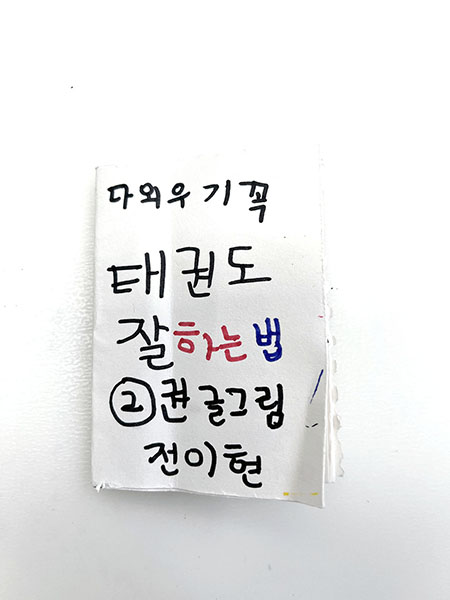 다외우기꼭
태권도
잘하는법
②권 글그림
전이현